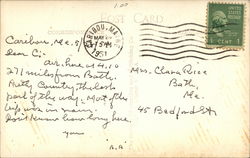 1.00
POST CARD
CARIBOU, ME.
MAY
5 PM
1951
1 CENT 1
Caribou, Me. 5/
Dear C:
Arr. here at 4.10
271 miles from Bath.
Pretty Country the last
part of the way. Most of the
trip was in rain.
Don't know how long here.
yours
A.A
Mrs. Clara Rice
Bath,
Me.
45 Bedford St